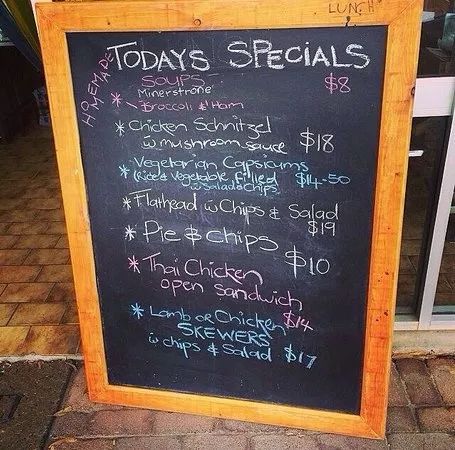 LUNCH
TODAYS SPECIALS
HOMEMADE
SOUPS $8
Minerstrone
* - Broccoli & Ham
* Chicken Schnitzel
w mushroom sauce $18
* Vegetarian Capsicums
(Rice & Vegetable filled $14-50
w Salad & Chips
* Flathead w Chips & Salad
$19
* Pie & Chips
$10
* Thai Chicken
open Sandwich
$14
* Lamb or Chicken
SKEWERS
w chips & Salad $17